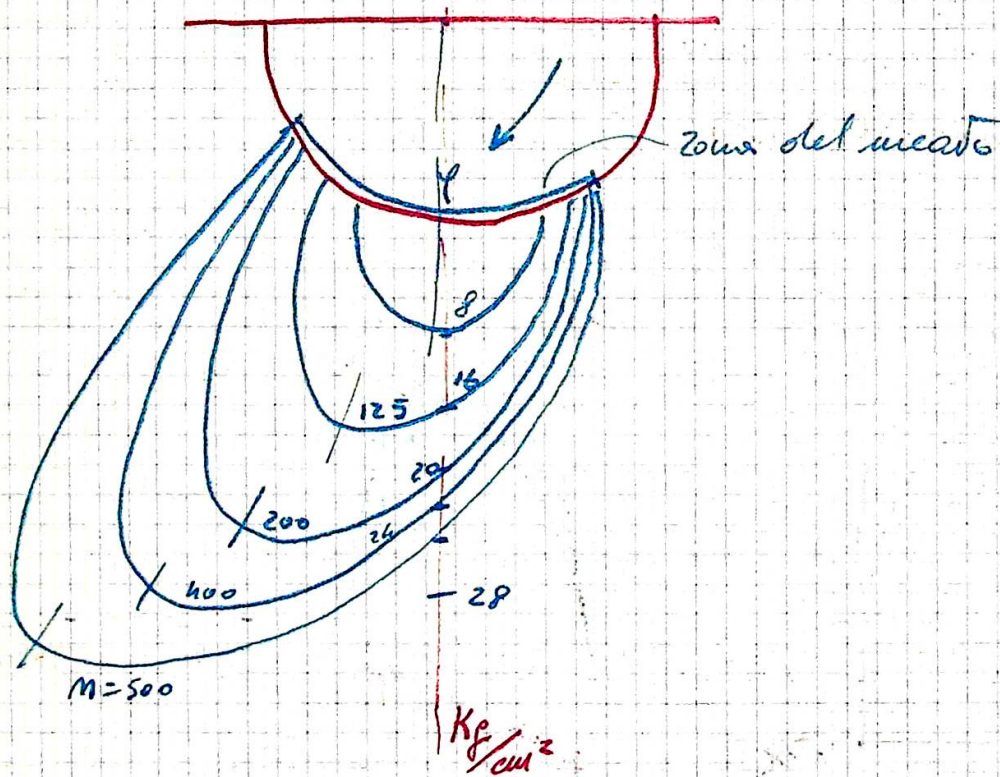 zona del meato
φ
8
16
125
20
200
24
400
28
n=500
Kg/cm²